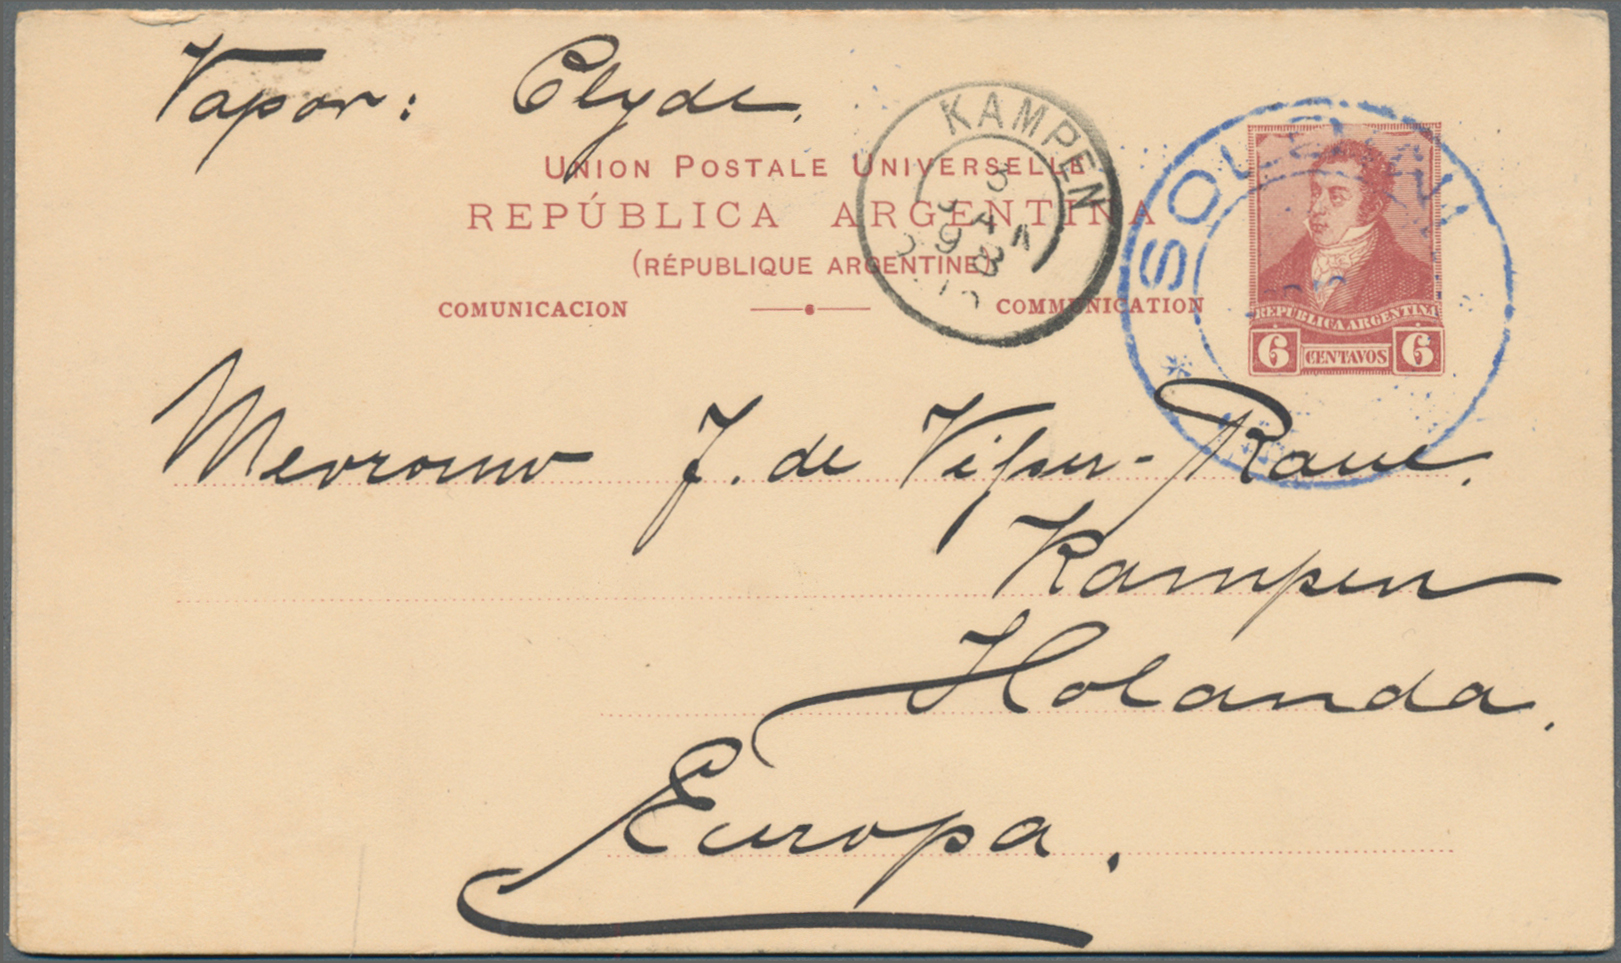 Vapor: Clyde.
UNION POSTALE UNIVERSELLE
REPÚBLICA ARGENTINA
(RÉPUBLIQUE ARGENTINE)
COMUNICACION COMMUNICATION
KAMPEN
3
JAN
98
REPUBLICA ARGENTINA
6 CENTAVOS 6
Mevrouw J. de Visser-Raue.
Kampen
Holanda.
Europa.